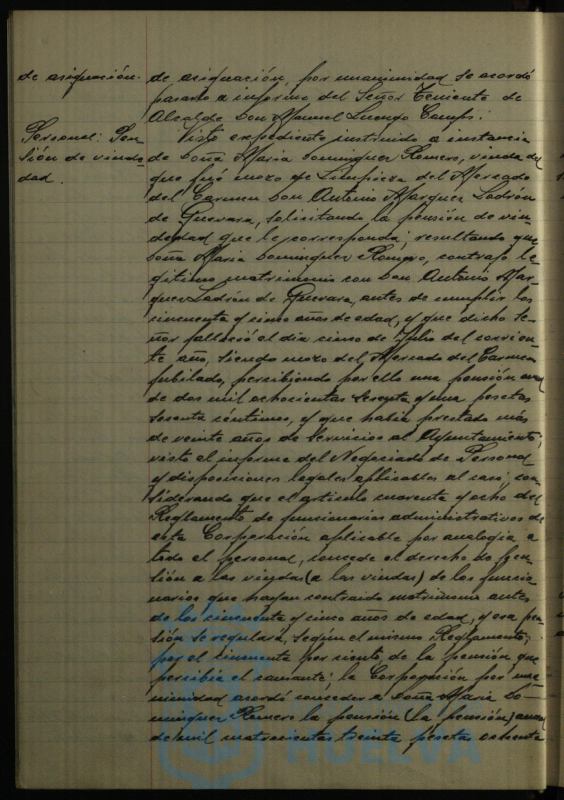 de asignación.
Personal: Pen-
sión de viude-
dad.
de asignación, por unanimidad se acordó
pasarlo a informe del Señor Teniente de
Alcalde Don Manuel Luengo Camps.
Visto expediente instruido a instancia
de Doña Maria Dominguez Romero, viuda del
que fué mozo de Limpieza del Mercado
del Carmen Don Antonio Marquez Ladrón
de Guevara, solicitando la pensión de viu-
dedad que le corresponda; resultando que
Doña Maria Dominguez Romero, contrajo le-
gitimo matrimonio con Don Antonio Mar-
quez Ladrón de Guevara, antes de cumplir los
cincuenta y cinco años de edad, y que dicho Se-
ñor falleció el día cinco de Julio del corrien-
te año, siendo mozo del Mercado del Carmen
jubilado, percibiendo por ello una pensión anual
de dos mil ochocientas sesenta y una pesetas
sesenta céntimos, y que habia prestado más
de veinte años de servicios al Ayuntamiento;
visto el informe del Negociado de Personal
y disposiciones legales aplicables al caso; con-
siderando que el articulo cuarenta y ocho del
Reglamento de funcionarios administrativos de
esta Corporación aplicable por analogia a
todo el personal, concede el derecho de pen-
sión a las viudas (a las viudas) de los funcio-
narios que hayan contraido matrimonio antes
de los cincuenta y cinco años de edad, y esa pen-
sión se regulará, según el mismo Reglamento,
por el cincuenta por ciento de la pensión que
percibia el causante; la Corporación por una-
nimidad acordó conceder a Doña Maria Do-
minguez Romero la pensión (la pensión) anual
de mil cuatrocientas treinta pesetas ochenta
HUELVA